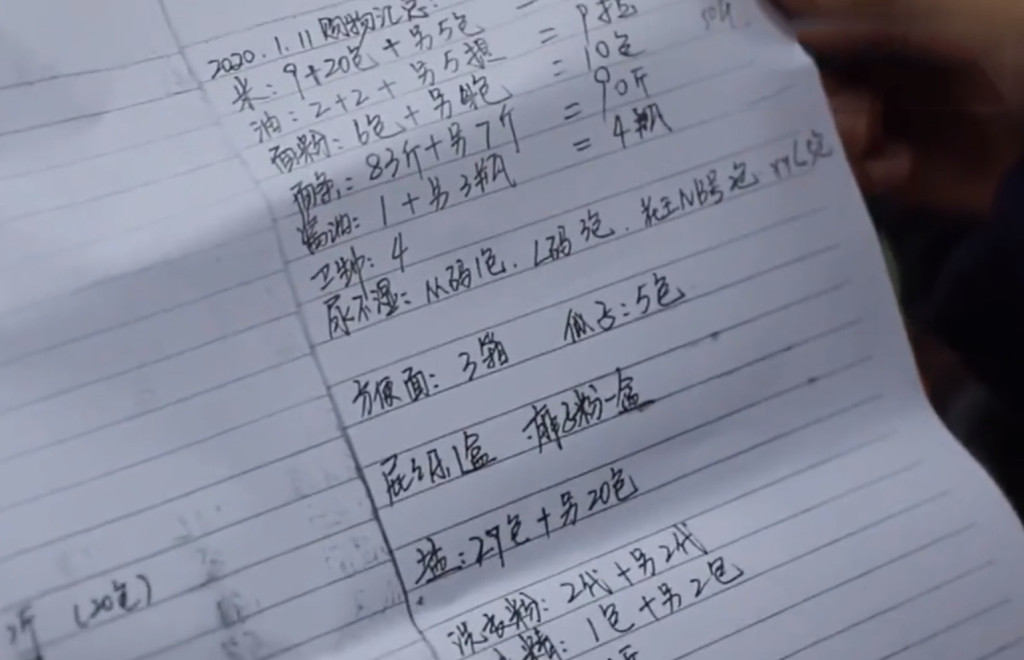 2020.1.11购物汇总:
米: 9+20包+另5包 =
油: 2+2+另5提 = 9提
面粉: 6包+另4包 = 10包
面条: 83斤+另7斤 = 90斤
酱油: 1+另3瓶 = 4瓶
卫生巾: 4
尿不湿: M码1包. L码3包. 花王NB号 包 XXL
方便面: 3箱 纸子: 5包
屁乐1盒 痱子粉一盒
盐: 29包+另20包
洗衣粉: 2代+另2代
精: 1包+另2包
斤 (20包)